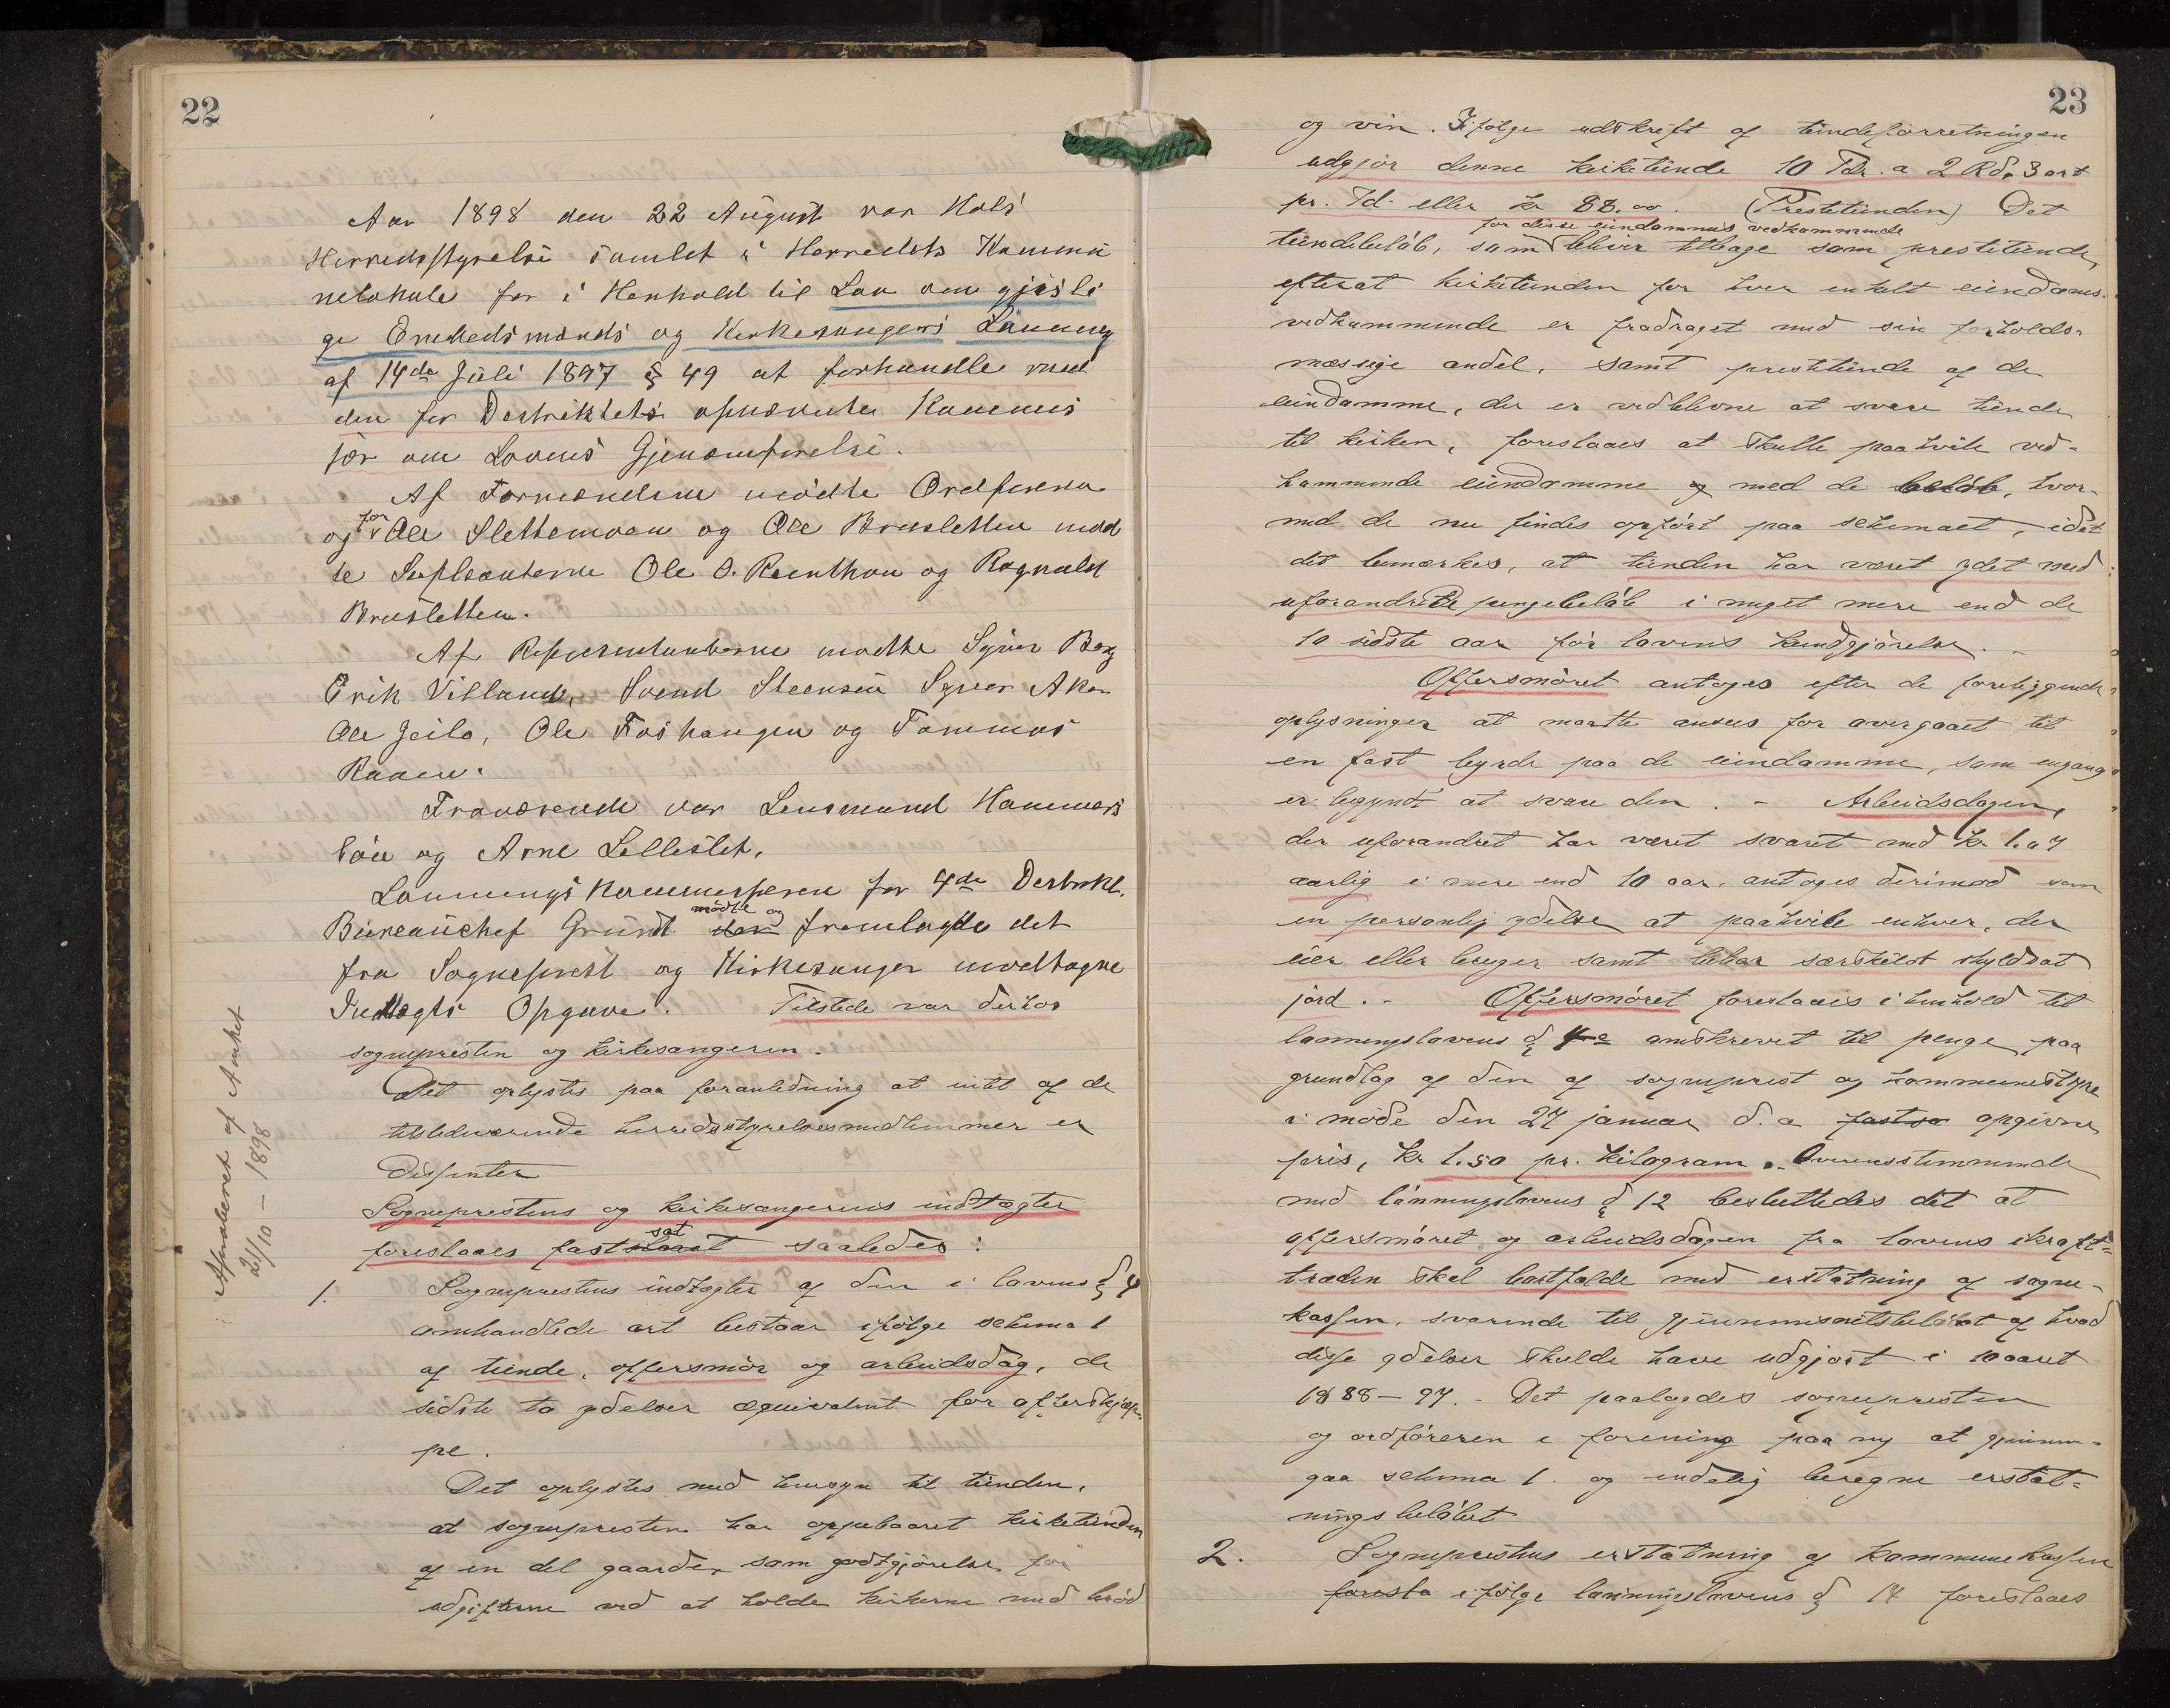 22
Aar 1898 den 22 August var Hols
Herredsstyrelse samlet i Herredets Kommu
nelokale for i Henhold til Lov om gjeistli
ge Embedsmænds og Kirkesangers Lønning
af 14de Juli 1897 § 49 at forhandle med
den for Destriktets opnævnte Kommis
jær om Lovens Gjenomførelse.
Af Formændene mødte Ordføreren
og for Ole Slettemoen og Ole Brusletten mød
te Suplianterne Ole O. Reenthon og Ragnvald
Brusletten.
Af Representanterne mødte Syver Berg
Erik Villand, Svend Steensen Syver Aker
Ole Jeilo, Ole Foshaugen og Tommas
Raaen.
Fraværende var Lensmand Hammers
bøen og Arne Lilleslet.
Lønningskommisjæren for 4de Destrikt.
Bureauchef Grundt mødte og fremlagde det
fra Sogneprest og Kirkesanger modtagne
Indtægts Opgave. Tilstede var derhos
sognepresten og kirkesangeren.
Det oplystes paa foranledning at intet af de
tilstedeværende herredsstyrelsesmedlemmer er
Dissenter
Sogneprestens og kirkesangerens indtægter
foreslaaes fastsat saaledes:
1. Sogneprestens indtægter af den i lovens § 4
omhandlede art bestaar ifølge schema 1
af tiende, offersmør og arbeidsdag, de
sidste to ydelser æquivalent for afherskjæp
pe.
Det oplystes med hensyn til tienden,
at sognepresten har oppebaaret kirketienden
af en del gaarder som godtgjørelse for
udgifterne ved at holde kirkerne med brød
Approberet af Amtet
21/10 – 1898
23
og vin. Ifølge udskrift af tiendeforretningen
udgjør denne kirketiende 10 Tdr. a 2 Rd. 3 ort
pr. Td. eller kr 88.00. (Prestetienden) Det
for disse eiendommes vedkommende
tiendebeløb, som bliver tilbage som prestetiende,
efterat kirketienden for hver enkelt eiendoms
vedkommende er fradraget med sin forholds-
mæssige andel, samt prestetiende af de
eiendomme, der er vedblevne at svare tiende
til kirken, foreslaaes at skulle paahvile ved-
kommende eiendomme med de beløb, hvor-
med de nu findes opført paa schemaet, idet
det bemærkes, at tienden har været ydet med
uforandrede pengebeløb i meget mere end de
10 sidste aar før lovens kundgjørelse. -
Offersmøret antoges efter de foreliggende
oplysninger at maatte ansees for overgaaet til
en fast byrde paa de eiendomme, som engang
er begyndt at svare den. - Arbeidsdagen,
der uforandret har været svaret med kr 1.07
aarlig i mere end 10 aar, antoges derimod som
en personlig ydelse at paahvile enhver, der
eier eller bruger samt bebor særskilt skyldsat
jord. - Offersmøret foreslaaes i henhold til
lønningslovens § 4 omskrevet til penge paa
grundlag af den af sogneprest og kommunestyre
i møde den 27 januar d. a. fastsa opgivne
pris, kr 1.50 pr. kilogram. - Overensstemmende
med lønningslovens § 12 besluttedes det at
offersmøret og arbeidsdagen fra lovens ikraft=
træden skal bortfalde med erstatning af sogne-
kassen, svarende til gjennemsnitsbeløbet af hvad
disse ydelser skulde have udgjort i 10 aaret
1888 – 97. - Det paalagdes sognepresten
og ordføreren i forening paa ny at gjennem-
gaa schema 1. og endelig beregne erstat=
ningsbeløbet
2. Sogneprestens erstatning af kommunekassen
foresla ifølge lønningslovens § 14 foreslaaes